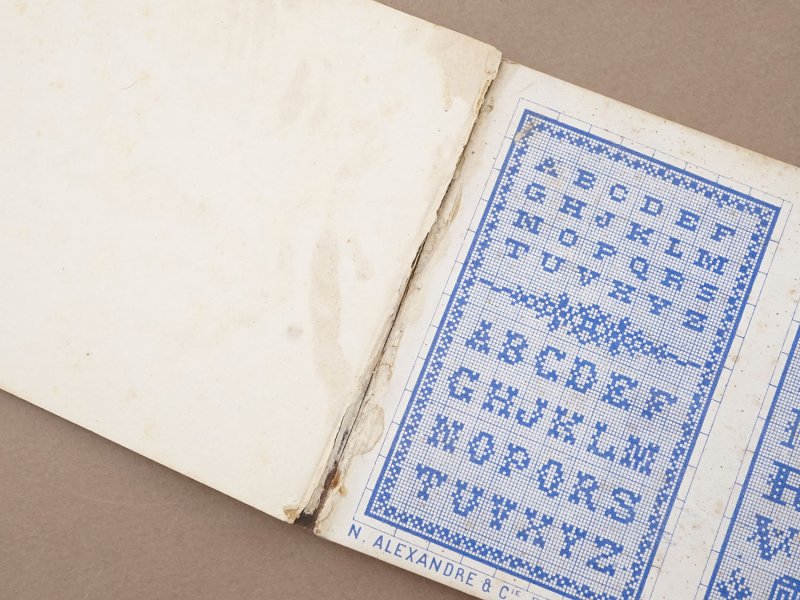 ABCDEF
GHJKLM
NOPQRS
TUVXYZ
ABCDEF
GHJKLM
NOPQRS
TUVXYZ
N. ALEXANDRE & Cie